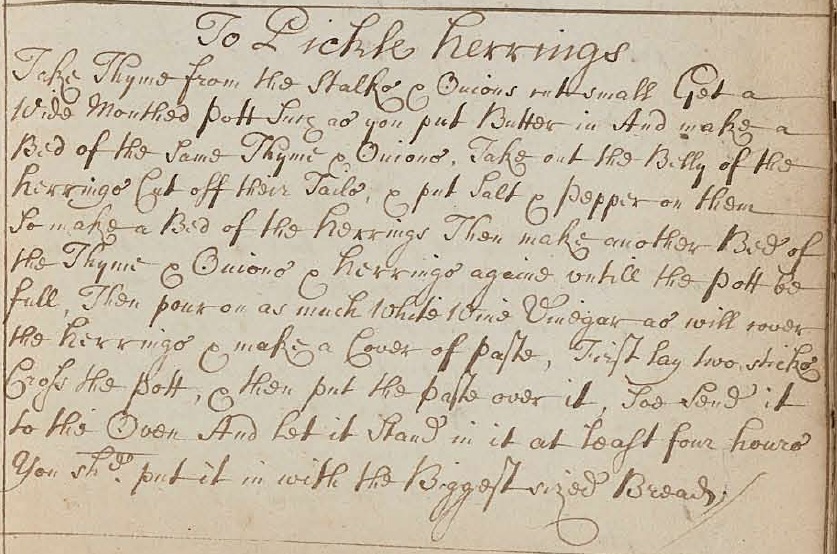 To Pickle herrings
Take Thyme from the Stalks & Onions cut small Get a
Wide Mouthed Pott Such as you put Butter in And make a
Bed of the Same Thyme & Onions, Take out the Belly of the
herrings Cut off their Tails, & put Salt & Pepper on them
So make a Bed of the herrings Then make another Bed of
the Thyme & Onions & herrings againe untill the Pott be
full, Then pour on as much White Wine Vinegar as will cover
the herrings & make a Cover of Paste, First lay two sticks
Cross the Pott, & then put the Paste over it, Soe Send it
to the Oven And let it Stand in it at least four hours
You shd. put it in with the Biggest sized Bread;